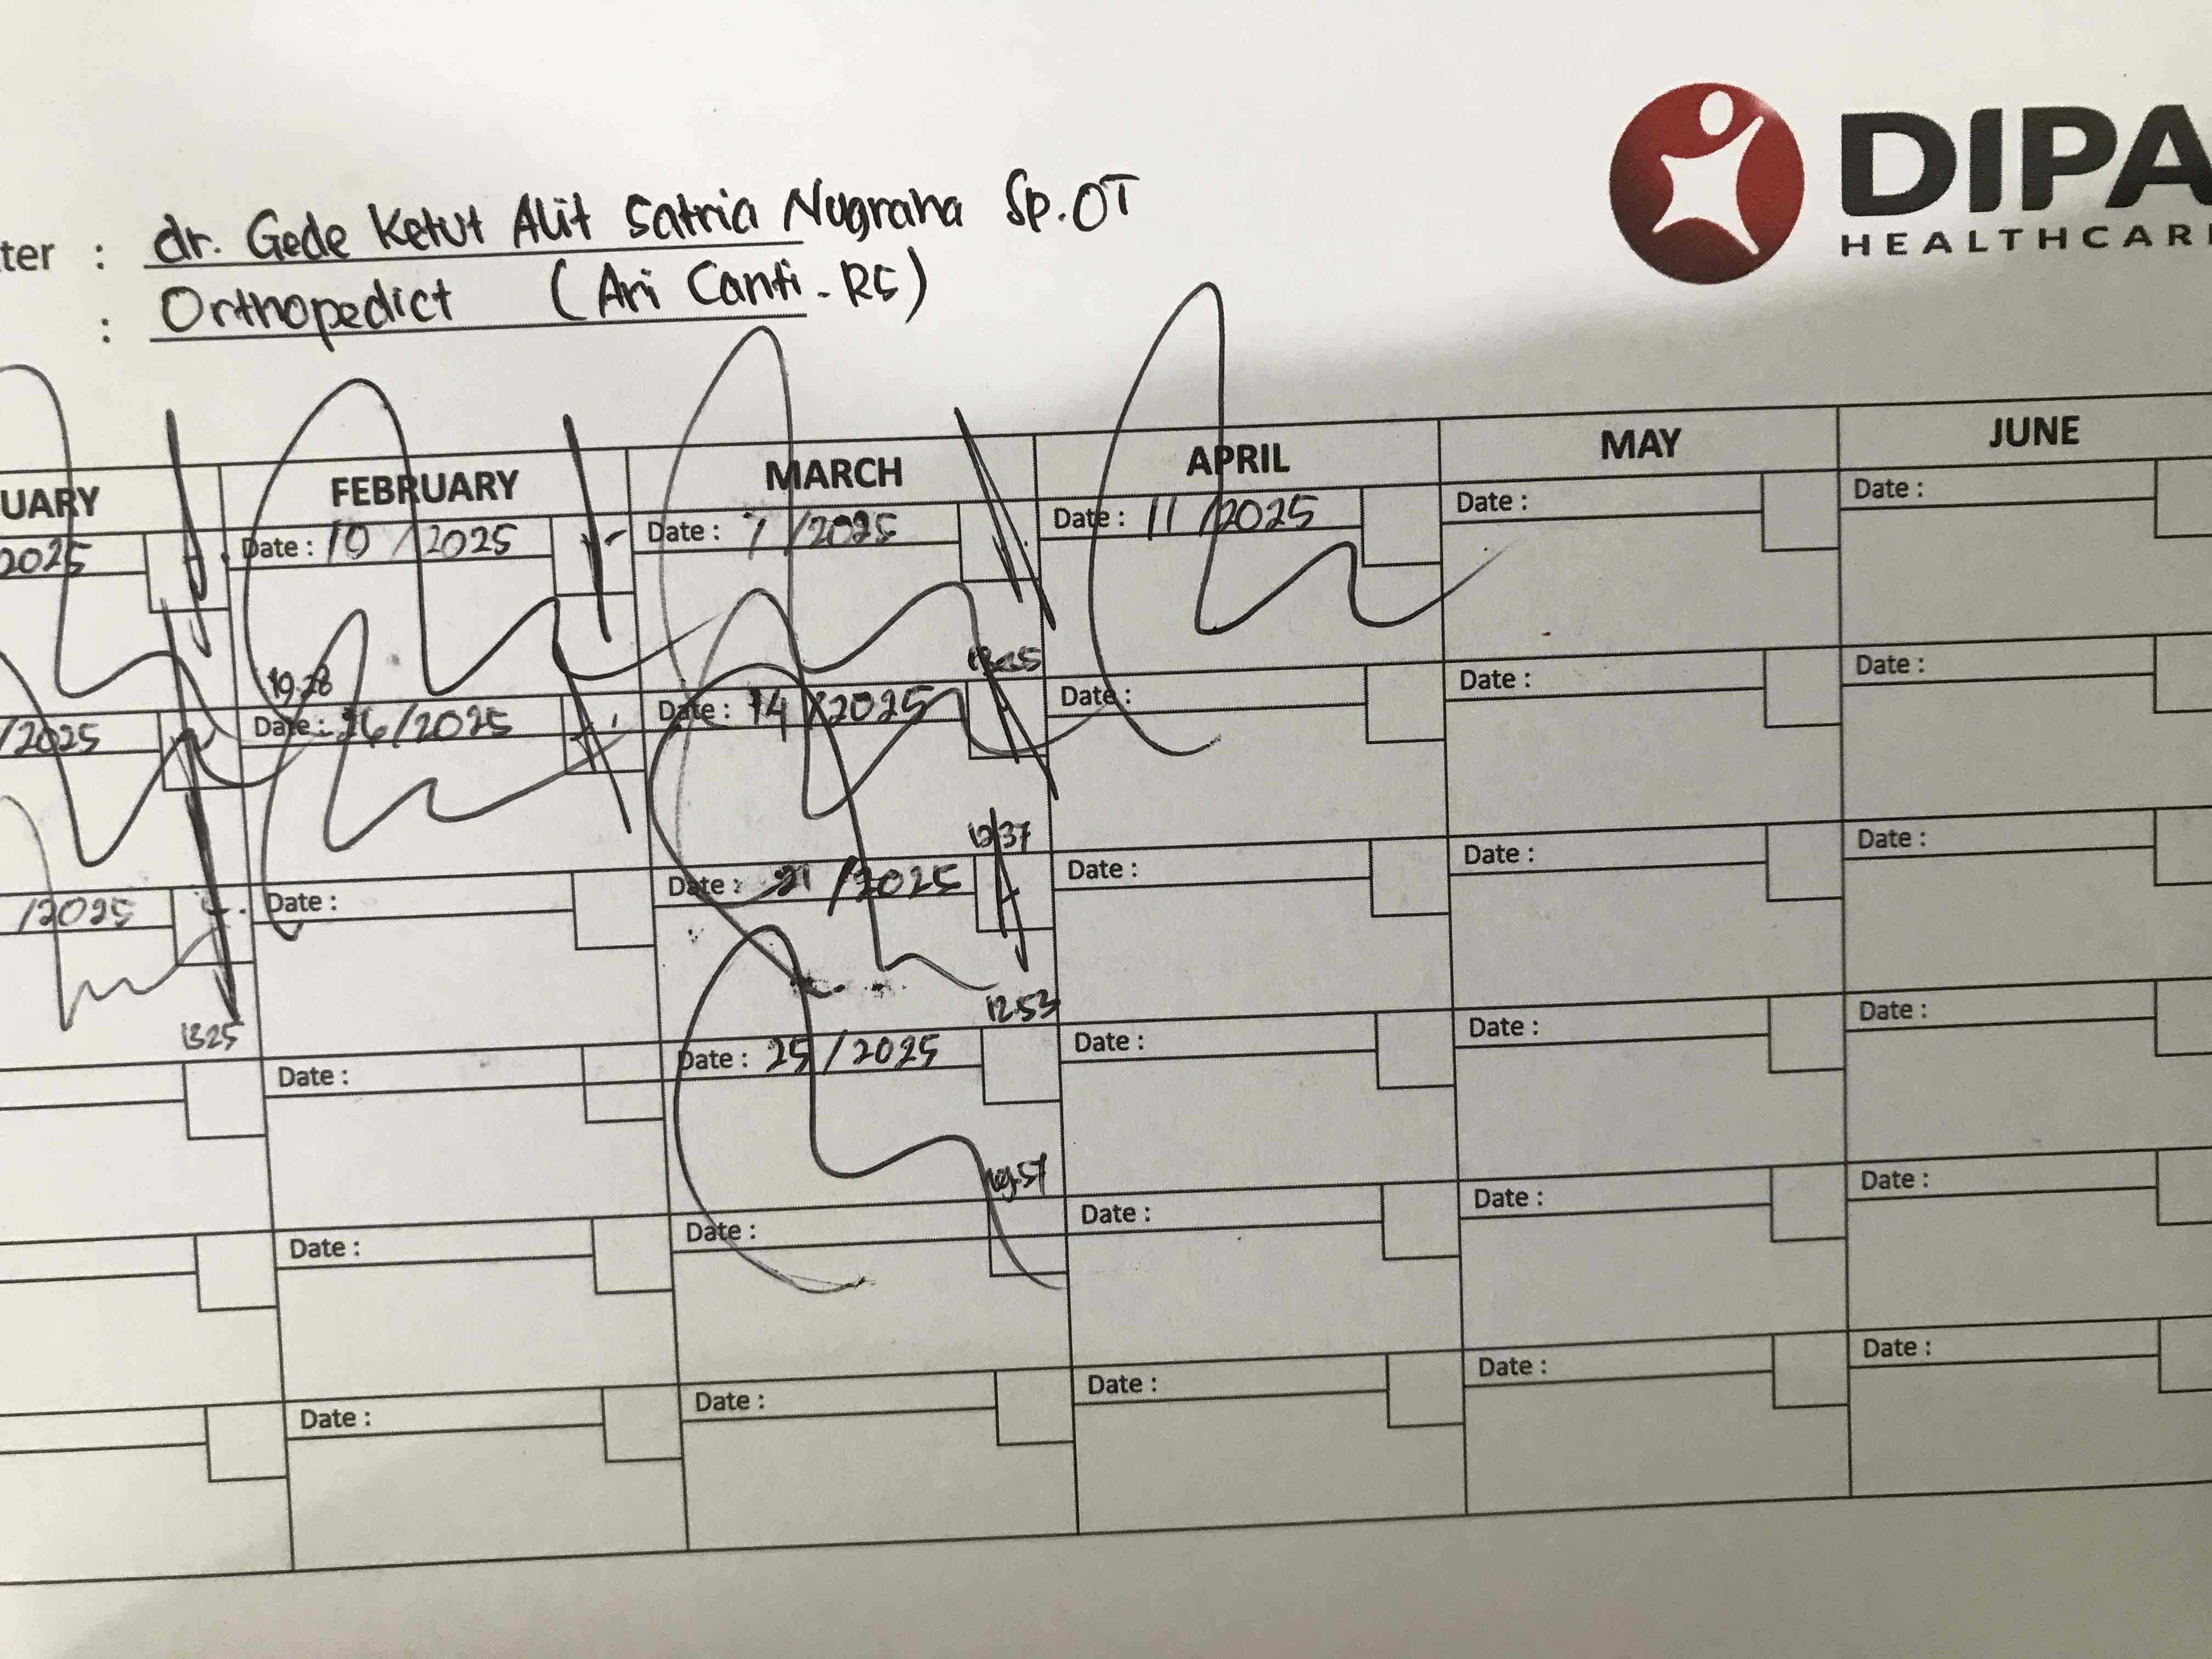 DIPA
HEALTHCAR
ter : dr. Gede Ketut Alit Satria Nugraha Sp.OT
: Orthopedict (Ari Canti - RS)
UARY FEBRUARY MARCH APRIL MAY JUNE
2025 Date : 10 /2025 Date : 7 /2025 Date : 11 /2025 Date : Date :
19.28
/2025 Date : 26/2025 Date : 14 /2025 Date : Date : Date :
12.37
/2025 Date : Date : 21 /2025 Date : Date : Date :
1325 12.53
Date : Date : 25 /2025 Date : Date : Date :
Date : Date : Date : Date : Date :
Date : Date : Date : Date : Date :